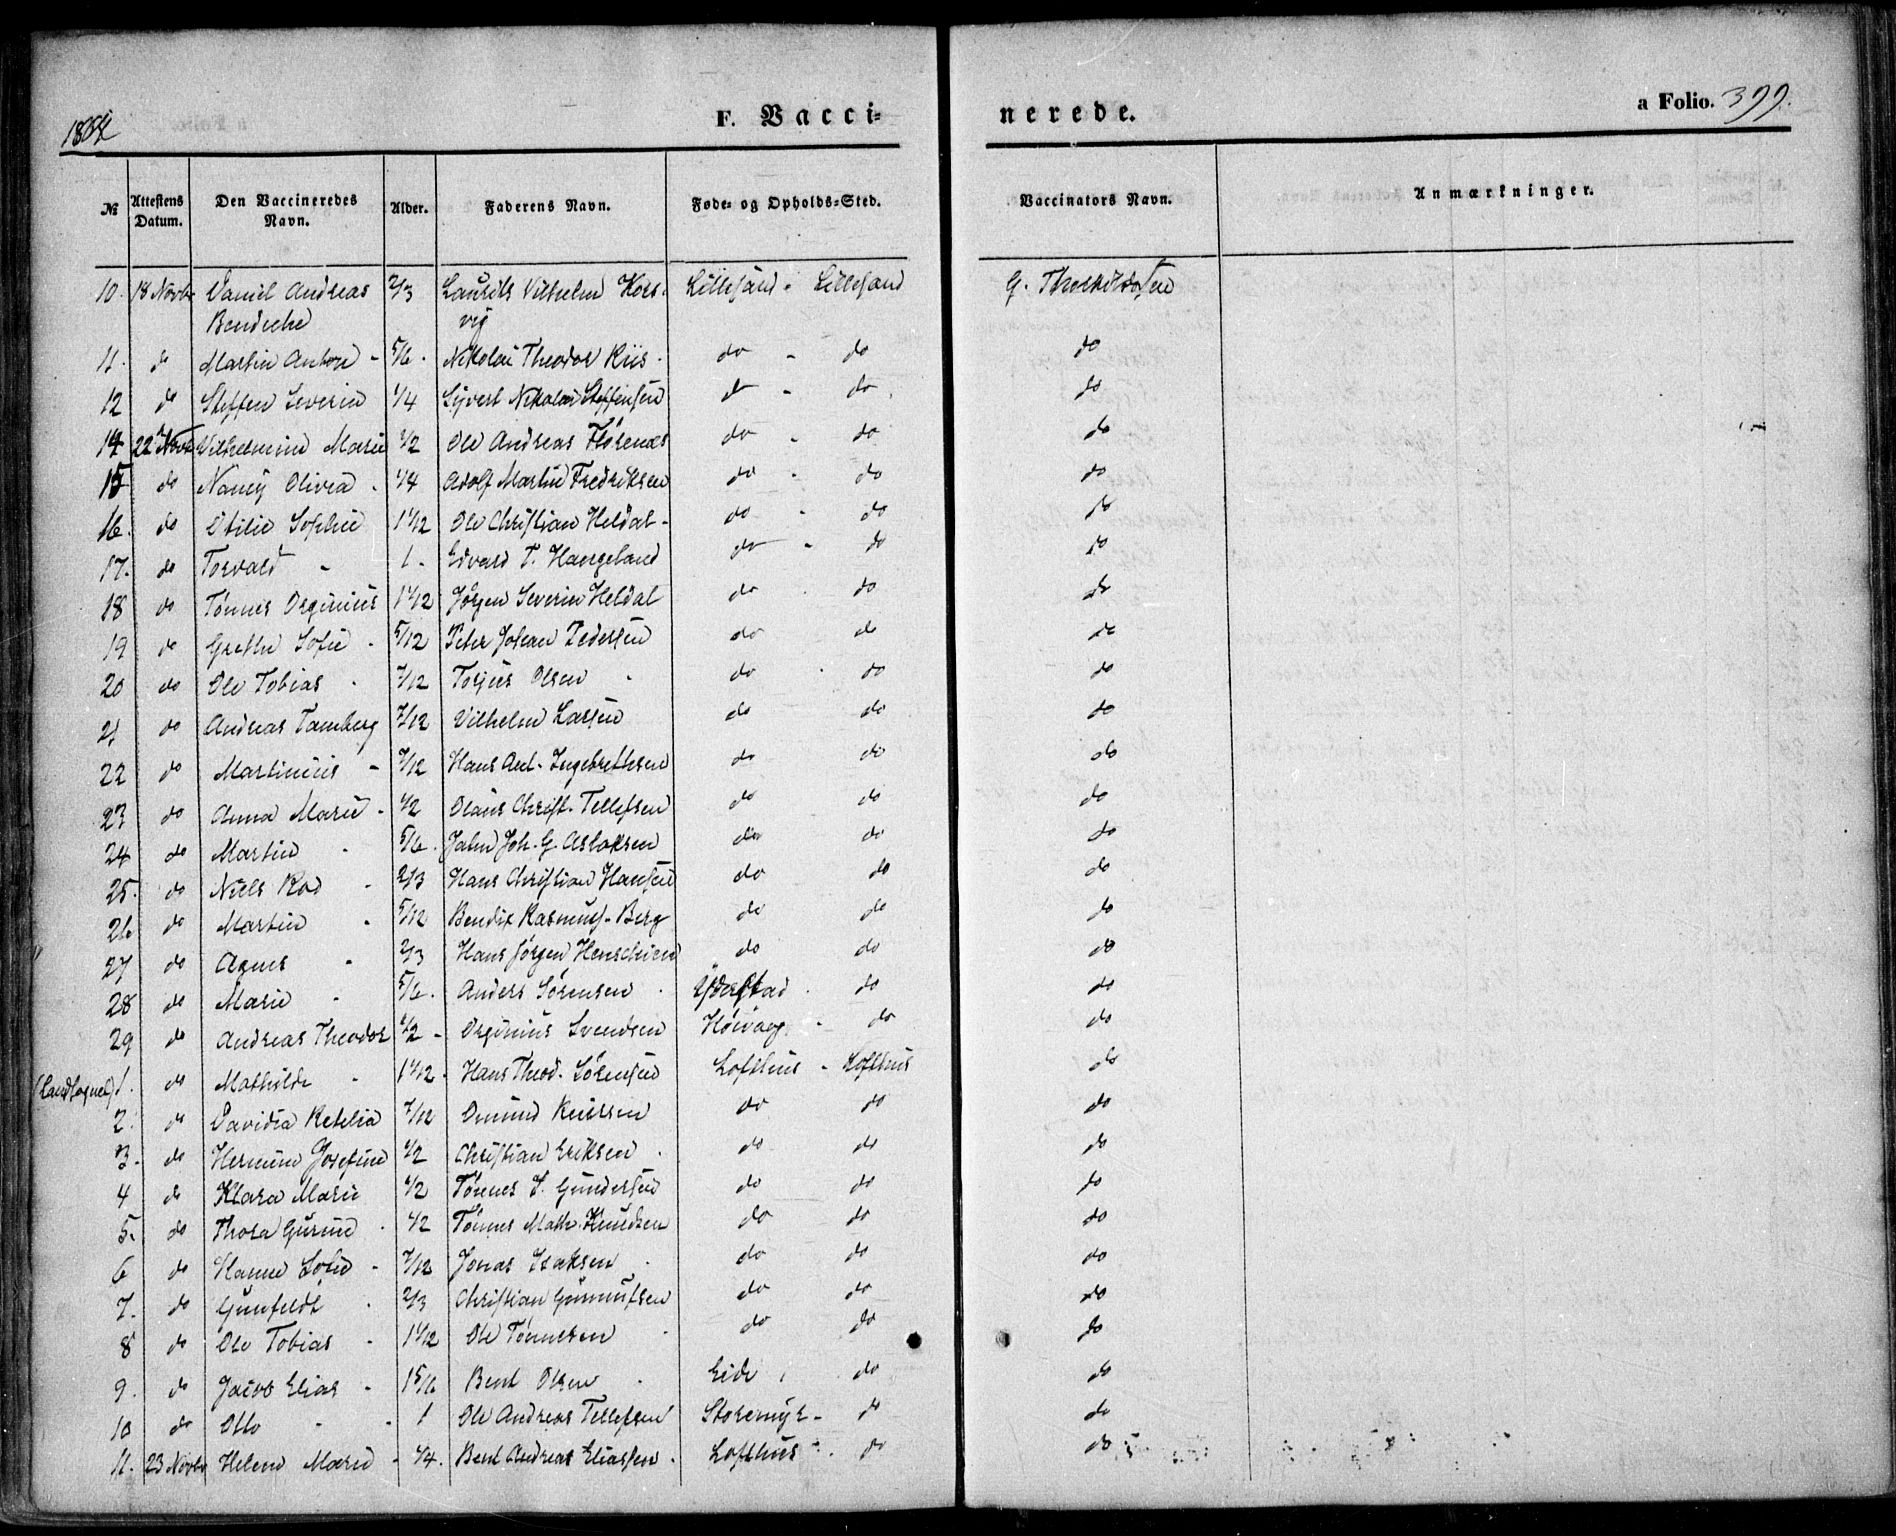 F. Vacci=
nerede.
a Folio. 399.
№ | Attestens Datum. | Den Vaccineredes Navn. | Alder. | Faderens Navn. | Føde- og Opholds-Sted. | Vaccinators Navn. | Anmærkninger.
10. 18 Novbr Daniel Andreas 2/3 Laurits Vilhelm Kors- Lillesand - Lillesand G.
vig
11. do Martin Anton - 5/6. Nikolai Theodor Riis. do - do do
12 do Steffen Severin 1/4 Syvert Nikolai Steffensen do - do. do
14 22 Novbr Vilhelmine Marie 1/2 Ole Andreas Florenæs do - do do
15 do Nancy Olivia. 1/4 Adolf Martin Fredriksen do - do do
16. do Otilie Sophie 1 1/12 Ole Christian Heldal- do - do do
17. do Torvald - 1. Edvard T. Haugeland do - do do
18 do Tønnes Orginius 1 1/12 Jørgen Severin Heldal do. do do
19 do Grethe Sofie. 5/12 Peter Johan Pedersen do do do
20 do Ole Tobias. 7/12 Torjus Olsen do. do do
21 do Andreas Tamberg 7/12 Vilhelm Larsen do do do
22 do Martinius - 7/12 Hans Ant. Ingebrethsen do do do
23 do Anna Marie - 1/2 Olaus Christ. Tellefsen do do do
24 do Martin. 5/6. Jahn Joh. G. Aslaksen do do do
25. do Niels Rod - 2/3 Hans Christian Hansen do do do
26 do Martin. 5/12 Bendix Rasmus. Berg do do do
27 do Agnes - 2/3 Hans Jørgen Henschien do do do
28 do Marie - 5/6. Anders Sørensen. do do
29 do Andreas Theodor 1/2 - Orginius Svendsen Høivaag - do do
(Landsognet) 1. do Mathilde - 1 1/12. Hans Theod. Sørensen Lofthus - Lofthus do
2. do Davidia 7/12 Omund Knutsen do do do
3. do Hermine Josefine 1/2 Christian Eriksen. do do do
4 do Klara Marie 1/2 Tønnes T. Gundersen do do do
5. do Thora Gurine. 1/2 Tønnes Math. Knudsen do do do
6 do Hanne - 7/12 Jonas Isaksen. do do do
7. do Gunfeldt. 2/3 Christian do do do
8 do Ole Tobias - 1 1/12 Ole Tønnesen do do do
9. do Jacob Elias - 1 5/6 Bent Olsen. Eide, do do
10 do Otto - - 1 Ole Andreas Tellefsen Storemyr - do do
11. 23 Novbr Helene Marie - 1/4. Bent Andreas Eliassen. Lofthus -. do do